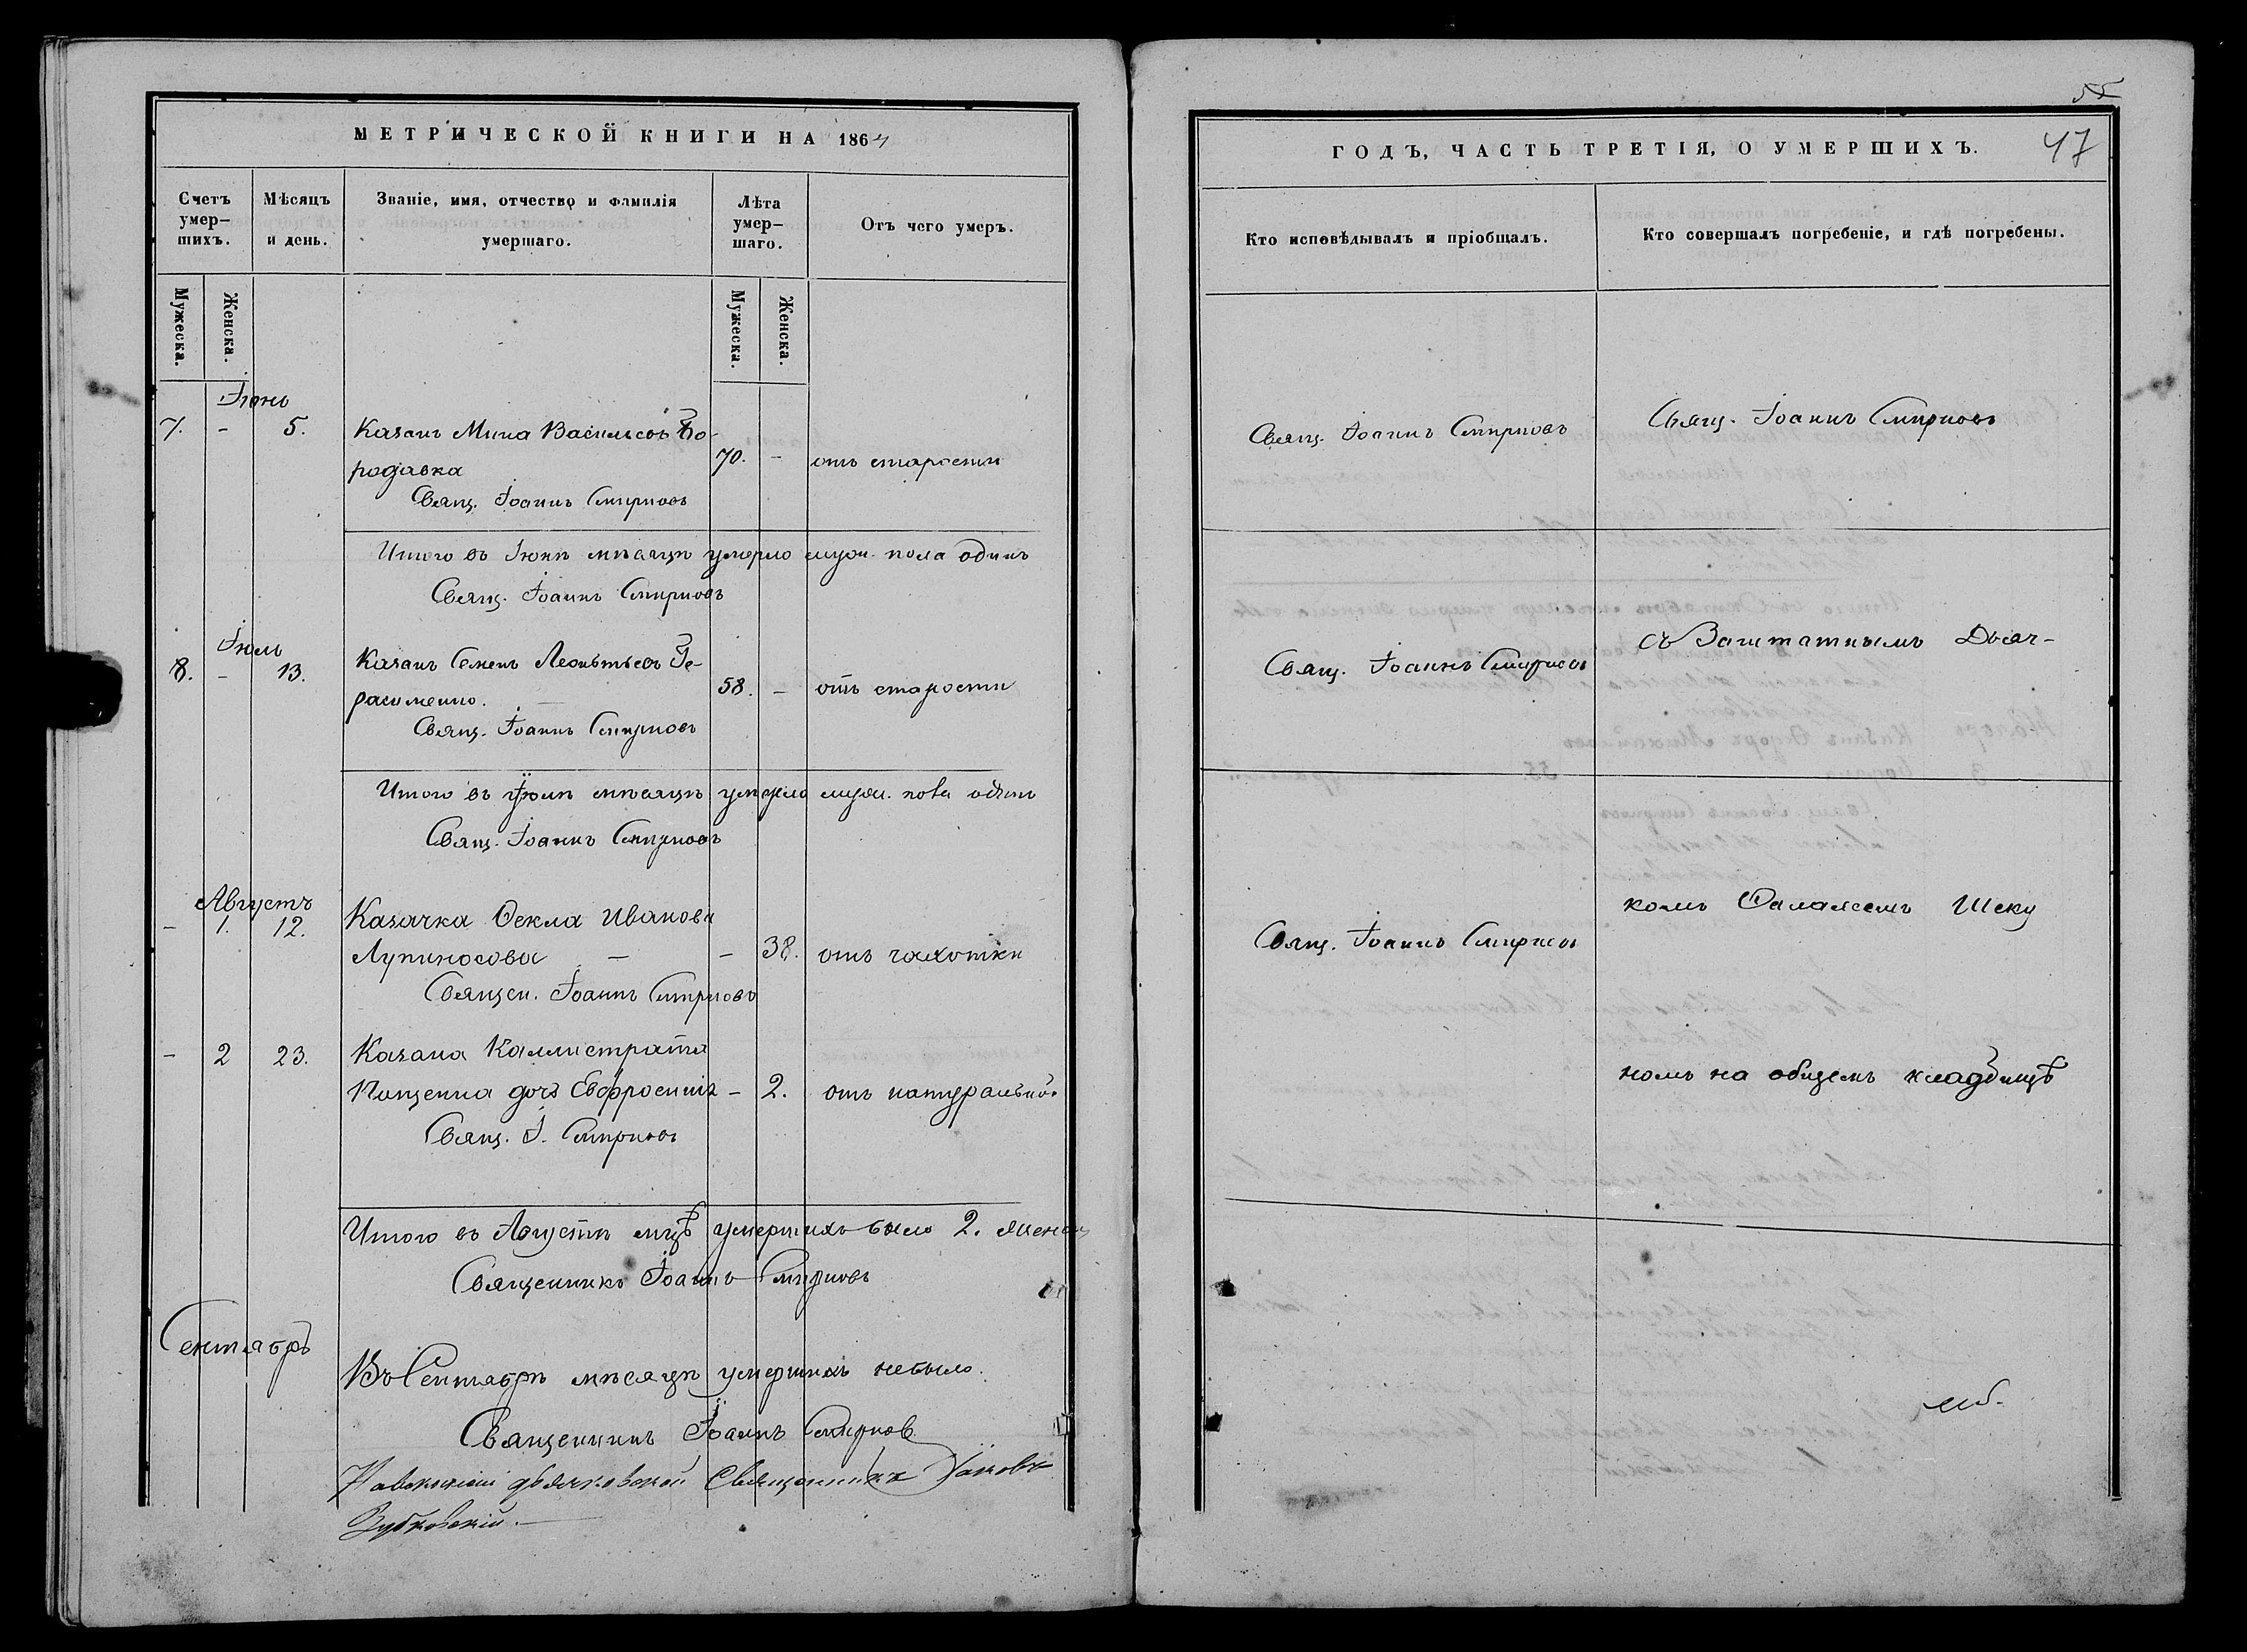 МЕТРИЧЕСКОЙ КНИГИ НА 1864
Счетъ умер-
шихъ.
Мѣсяцъ
и день.
Званіе, имя, отчество и фамилія
умершаго.
Лѣта
умер-
шаго.
Отъ чего умеръ.
Мужеска.
Женска.
Мужеска.
Женска.
Іюнь
7. - 5. Казакъ Мина Васильевъ Бо-
родавка 70. - отъ старости
Свящ. Іоаннъ Смирновъ
Итого въ Іюнѣ мѣсяцѣ умерло муж. пола одинъ
Свящ. Іоаннъ Смирновъ
Іюль
8. - 13. Казакъ Семенъ Леонтьевъ Ге-
расименко. 58. - отъ старости
Свящ. Іоаннъ Смирновъ
Итого въ Іюлѣ мѣсяцѣ умерло муж. пола одинъ
Свящ. Іоаннъ Смирновъ
Августъ
- 1. 12. Казачка Ѳекла Иванова
Лупиносова - - 38. отъ чахотки
Священ. Іоаннъ Смирновъ
- 2 23. Казака Каллистрата
Пащенка дочь Евфросинія - 2. отъ натуральной
Свящ. І. Смирновъ
Итого въ Августѣ мцѣ умершихъ было 2. женск
Священникъ Іоаннъ Смирновъ
Сентябрь
Въ Сентябрѣ мѣсяцѣ умершихъ небыло.
Священникъ Іоаннъ Смирновъ
Священникъ
Зубковскій.
55
ГОДЪ, ЧАСТЬ ТРЕТІЯ, О УМЕРШИХЪ. 47
Кто исповѣдывалъ и пріобщалъ.
Кто совершалъ погребеніе, и гдѣ погребены.
Свящ. Іоаннъ Смирновъ
Свящ. Іоаннъ Смирновъ
Свящ. Іоаннъ Смирновъ
съ Заштатнымъ Дьяч-
Свящ. Іоаннъ Смирновъ
комъ Саламеемъ Шеку
номъ на общемъ кладбищѣ